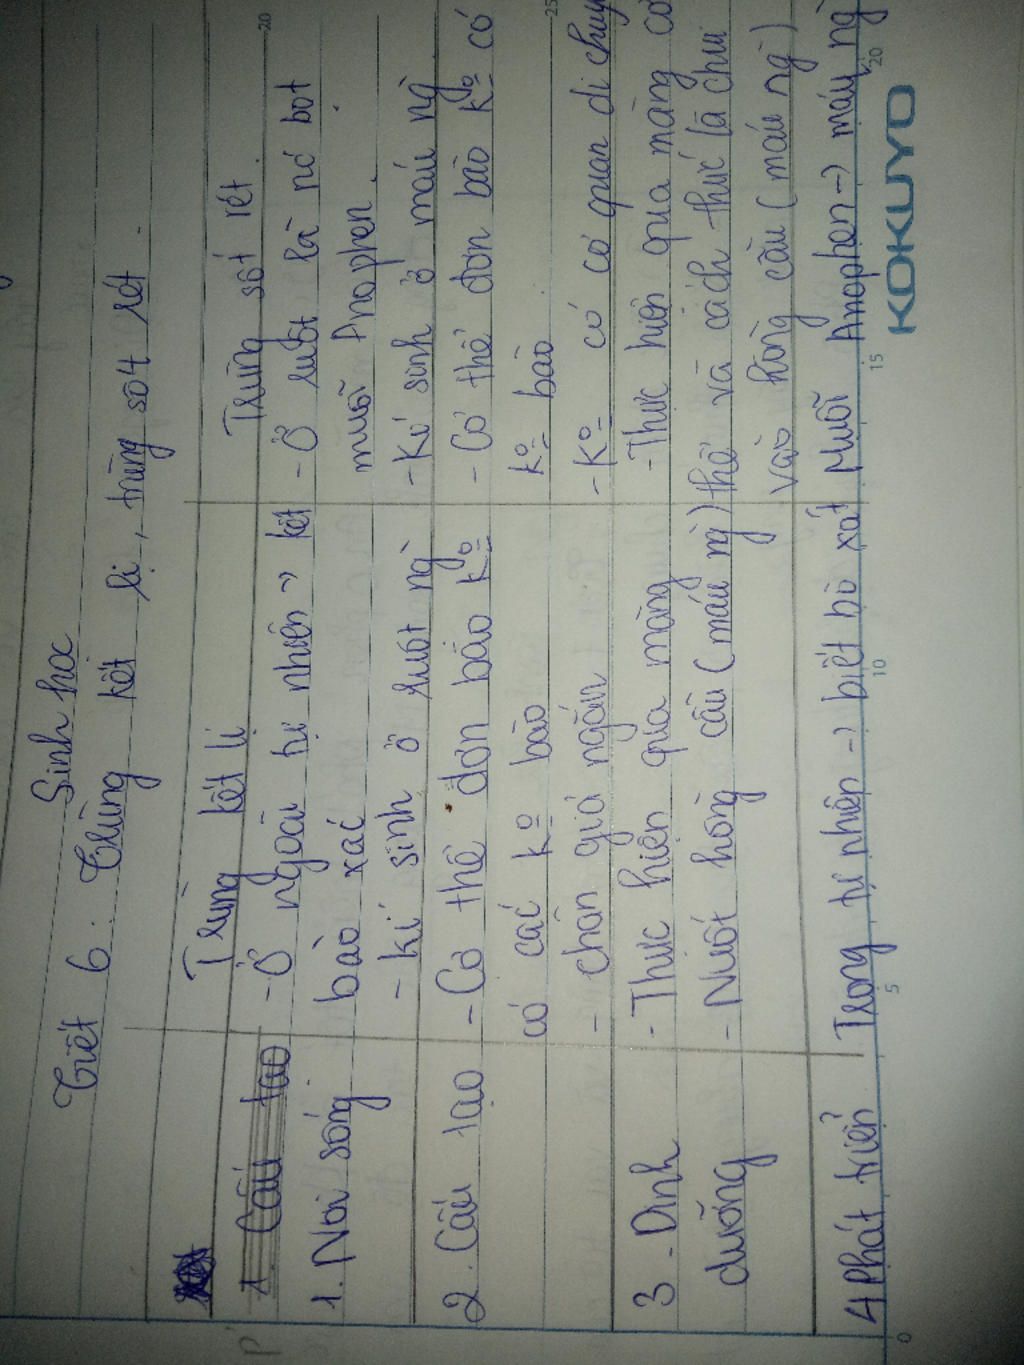 Sinh học
Tiết 6: Trùng kết lị, trùng sốt rét.
Trùng kết lị
Trùng sốt rét.
1. Cấu tạo
1. Nơi sống
- Ở ngoài tự nhiên -> kết
bào xác
- kí sinh ở ruột ng
- Ở ruột là nc bọt
muỗi Anophen.
- Kí sinh ở máu ng
2. Cấu tạo
- Cơ thể đơn bào ko
có các ko bào
- chân giả ngắn
- Cơ thể đơn bào ko có
ko bào
- Ko có cơ quan di chuy
3. Dinh
dưỡng
- Thực hiện qua màng
- Nuốt hồng cầu (máu ng)
- Thực hiện qua màng cơ
thể và cách thức là chui
vào hồng cầu (máu ng)
4 Phát triển
Trong tự nhiên -> biết bò xát
Muỗi Anophen -> máu ng
KOKUYO
0 5 10 15 20
20
25